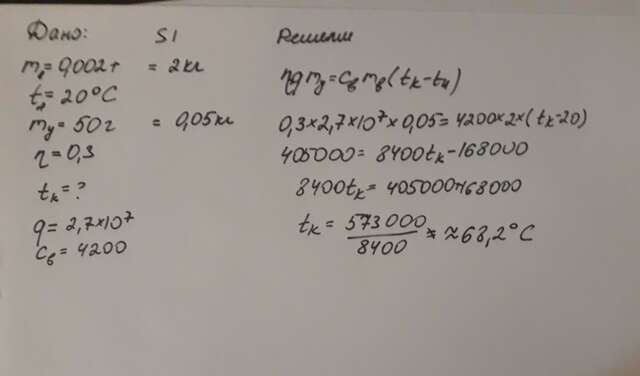 Дано:
SI
m₁=0,002т = 2кг
t₁=20°C
mу=50г = 0,05кг
η=0,3
tк=?
q=2,7×10⁷
cв=4200
Решение
ηqmу=cвmв(tк-tн)
0,3×2,7×10⁷×0,05=4200×2×(tк-20)
405000=8400tк-168000
8400tк=405000+168000
tк=573000/8400≈68,2°C